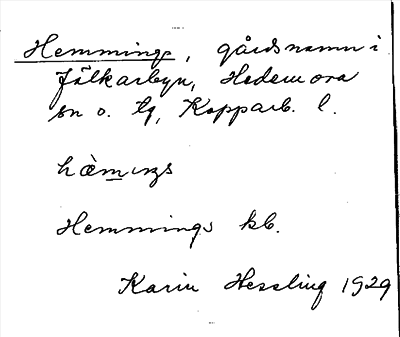 Hemmings, gårdsnamn i
Jälkarbyn, Hedemora
sn o. tg, Kopparb. l.
hæ̀mɩŋs
Hemmings kb.
Karin Hessling 1929